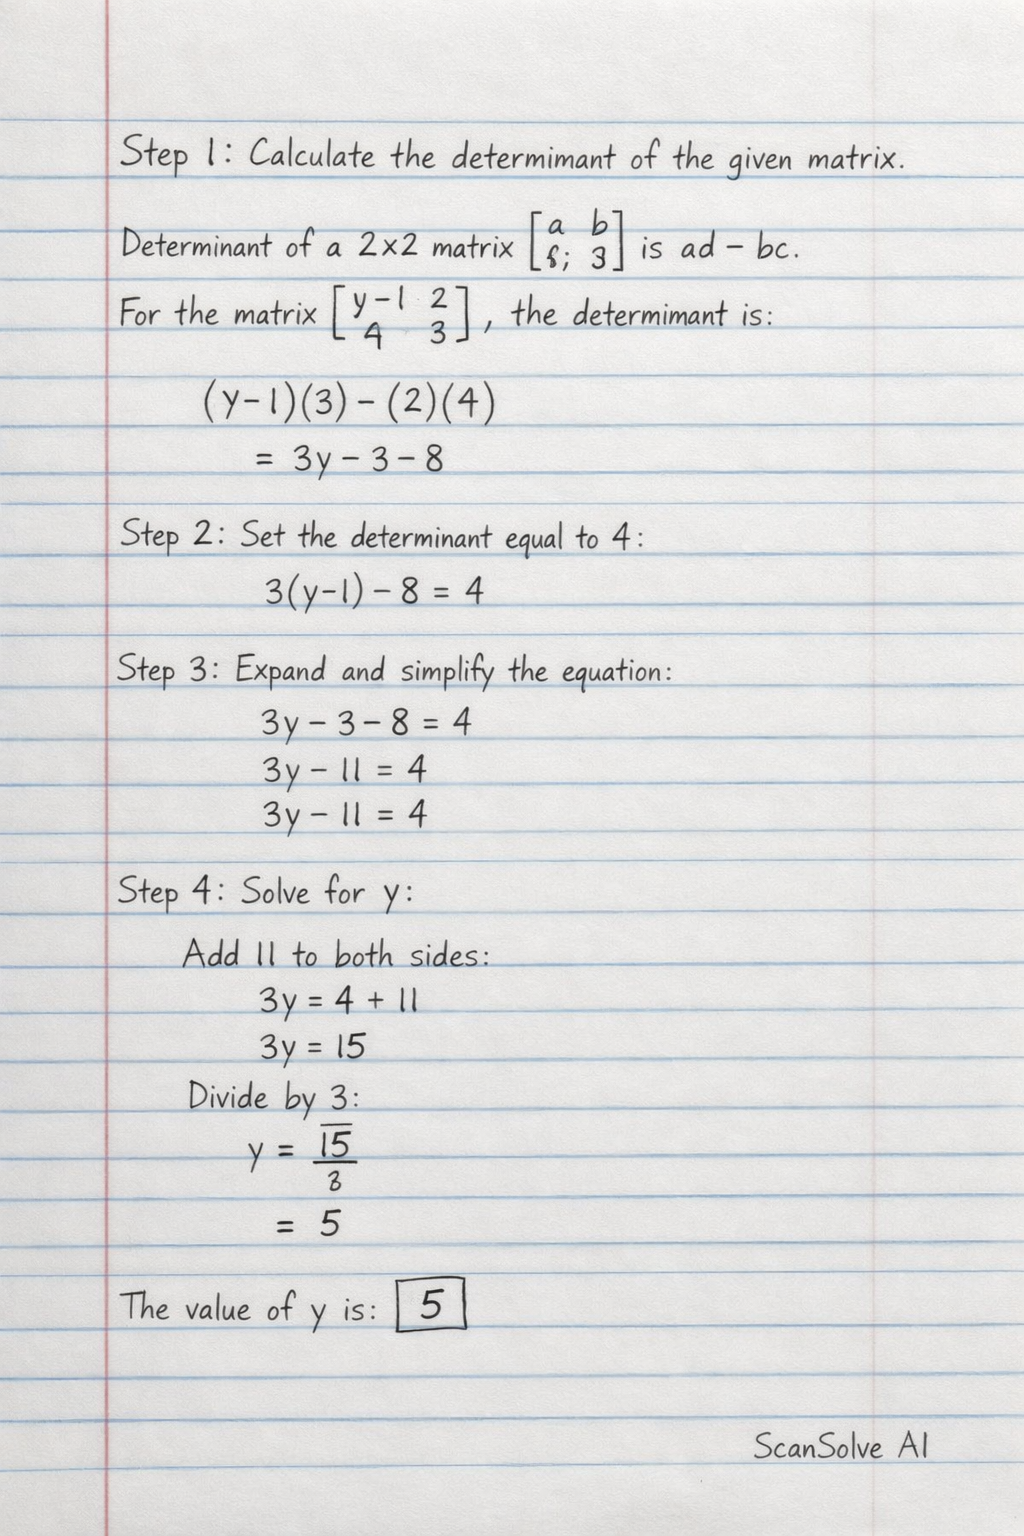 Step 1: Calculate the determimant of the given matrix.
Determinant of a 2×2 matrix [a b; 6; 3] is ad - bc.
For the matrix [y-1 2; 4 3], the determimant is:
(y-1)(3) - (2)(4)
= 3y - 3 - 8
Step 2: Set the determinant equal to 4:
3(y-1) - 8 = 4
Step 3: Expand and simplify the equation:
3y - 3 - 8 = 4
3y - 11 = 4
3y - 11 = 4
Step 4: Solve for y:
Add 11 to both sides:
3y = 4 + 11
3y = 15
Divide by 3:
y = 15/3
= 5
The value of y is: 5
ScanSolve AI